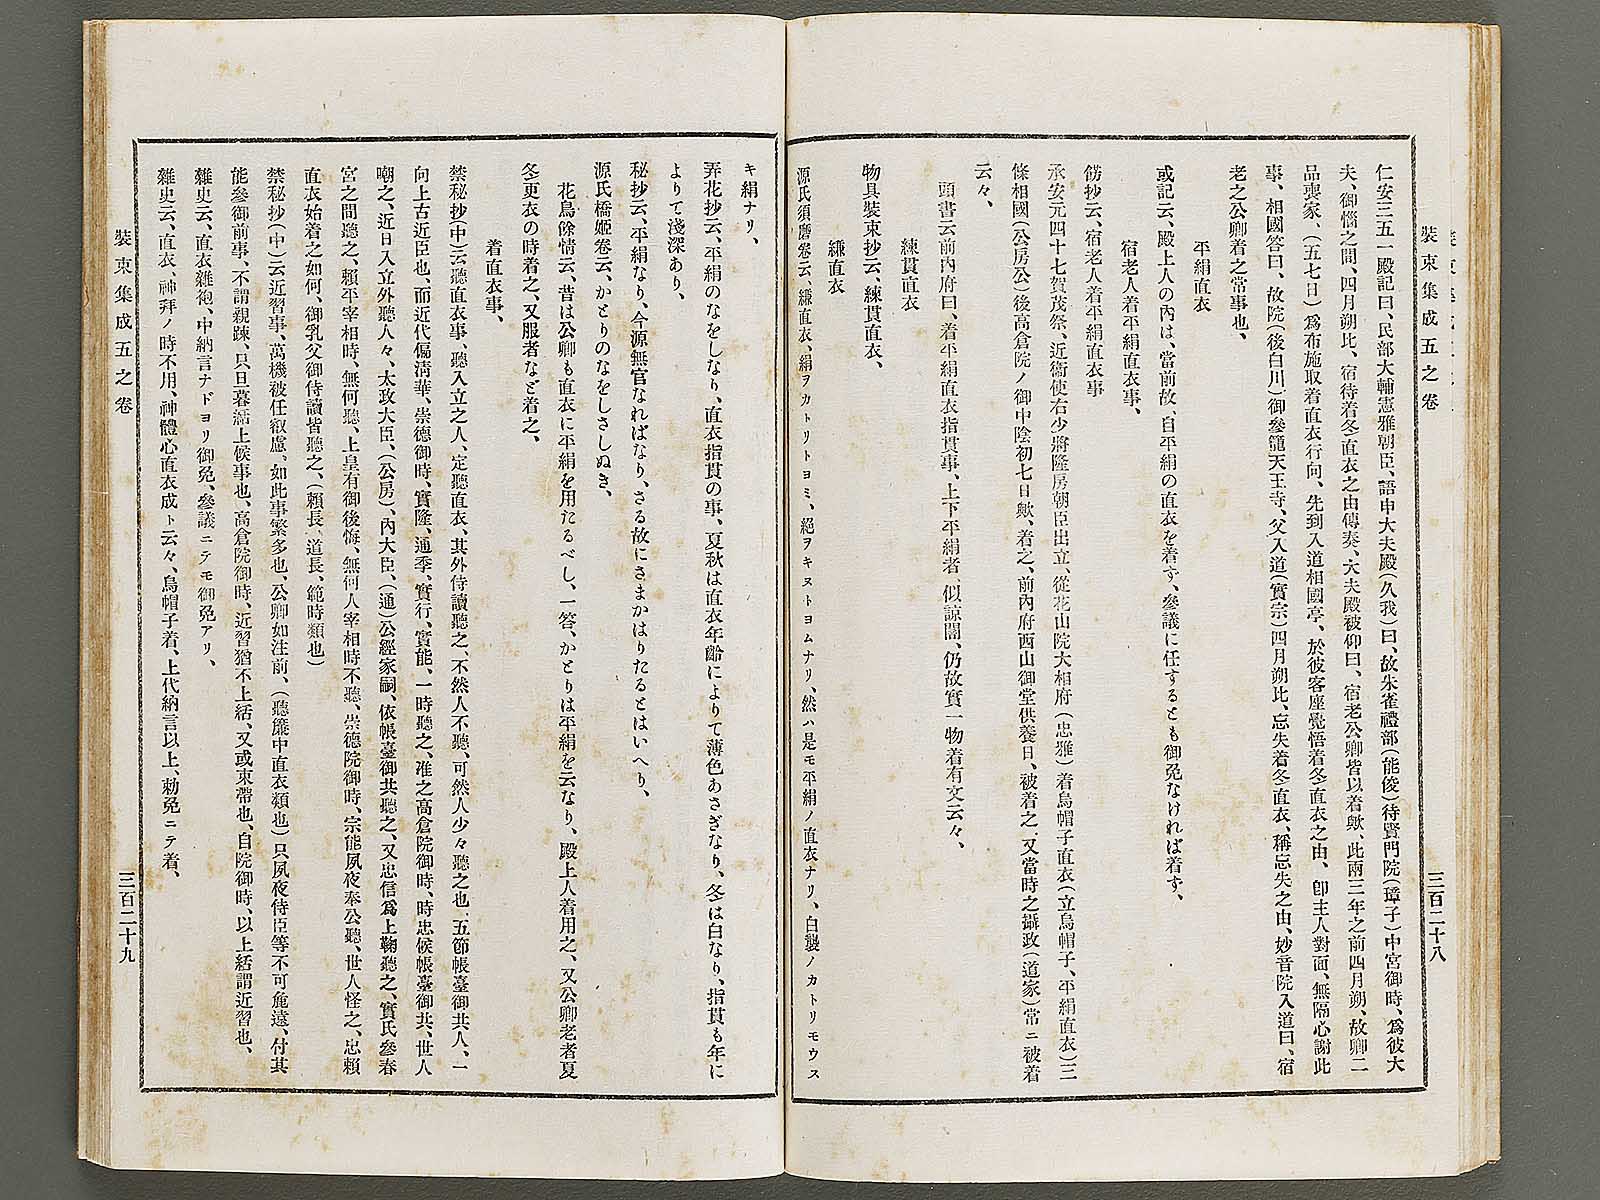 裝束集成五之卷
三百二十八
仁安三五一殿記曰、民部大輔憲雅朝臣、語申大夫殿(久我)曰、故朱雀禮部(能俊)待賢門院(璋子)中宮御時、爲彼大
夫、御惱之間、四月朔比、宿待着冬直衣之由傳奏、大夫殿被仰曰、宿老公卿皆以着歟、此兩三年之前四月朔、故卿二
品喪家、(五七日)爲布施取着直衣行向、先到入道相國亭、於彼客座覺悟着冬直衣之由、卽主人對面、無隔心謝此
事、相國答曰、故院(後白川)御參籠天王寺、父入道(實宗)四月朔比、忘失着冬直衣、稱忘失之由、妙音院入道曰、宿
老之公卿着之常事也、
平絹直衣
或記云、殿上人の內は、當前故、自平絹の直衣を着す、參議に任するとも御免なければ着す、
宿老人着平絹直衣事、
餝抄云、宿老人着平絹直衣事
承安元四十七賀茂祭、近衞使右少將隆房朝臣出立、從花山院大相府(忠雅)着烏帽子直衣(立烏帽子、平絹直衣)三
條相國(公房公)後高倉院ノ御中陰初七日歟、着之、前內府西山御堂供養日、被着之、又當時之攝政(道家)常ニ被着
云々、
頭書云前內府曰、着平絹直衣指貫事、上下平絹者、似諒闇、仍故實一物着有文云々、
練貫直衣
物具裝束抄云、練貫直衣、
縑直衣
源氏須磨卷云、縑直衣、絹ヲカトリトヨミ、絕ヲキヌトヨムナリ、然ハ是モ平絹ノ直衣ナリ、白襲ノカトリモウス
キ絹ナリ、
弄花抄云、平絹のなをしなり、直衣指貫の事、夏秋は直衣年齡によりて薄色あさぎなり、冬は白なり、指貫も年に
よりて淺深あり、
秘抄云、平絹なり、今源無官なればなり、さる故にさまかはりたるとはいへり、
源氏橋姬卷云、かとりのなをしさしぬき、
花鳥餘情云、昔は公卿も直衣に平絹を用たるべし、一答、かとりは平絹を云なり、殿上人着用之、又公卿老者夏
冬更衣の時着之、又服者など着之、
着直衣事、
禁秘抄(中)云聽直衣事、聽入立之人、定聽直衣、其外侍讀聽之、不然人不聽、可然人少々聽之也、五節帳臺御共人、一
向上古近臣也、而近代偏淸華、崇德御時、實隆、通季、實行、實能、一時聽之、准之高倉院御時、時忠候帳臺御共、世人
嘲之、近日入立外聽人々、太政大臣、(公房)、內大臣、(通)公經家嗣、依帳臺御共聽之、又忠信爲上鞠聽之、實氏參春
宮之間聽之、賴平宰相時、無何聽、上皇有御後悔、無何人宰相時不聽、崇德院御時、宗能夙夜奉公聽、世人怪之、忠賴
直衣始着之如何、御乳父御侍讀皆聽之、(賴長、道長、範時類也)
禁秘抄(中)云近習事、萬機被任叡慮、如此事繁多也、公卿如注前、(聽簾中直衣類也)只夙夜侍臣等不可麁遠、付其
能參御前事、不謂親踈、只旦暮編上候事也、高倉院御時、近習猶不上括、又或束帶也、自院御時、以上括謂近習也、
雜史云、直衣雜袍、中納言ナドヨリ御免、參議ニテモ御免アリ、
雜史云、直衣、神拜ノ時不用、神體心直衣成ト云々、烏帽子着、上代納言以上、勅免ニテ着、
裝束集成五之卷
三百二十九